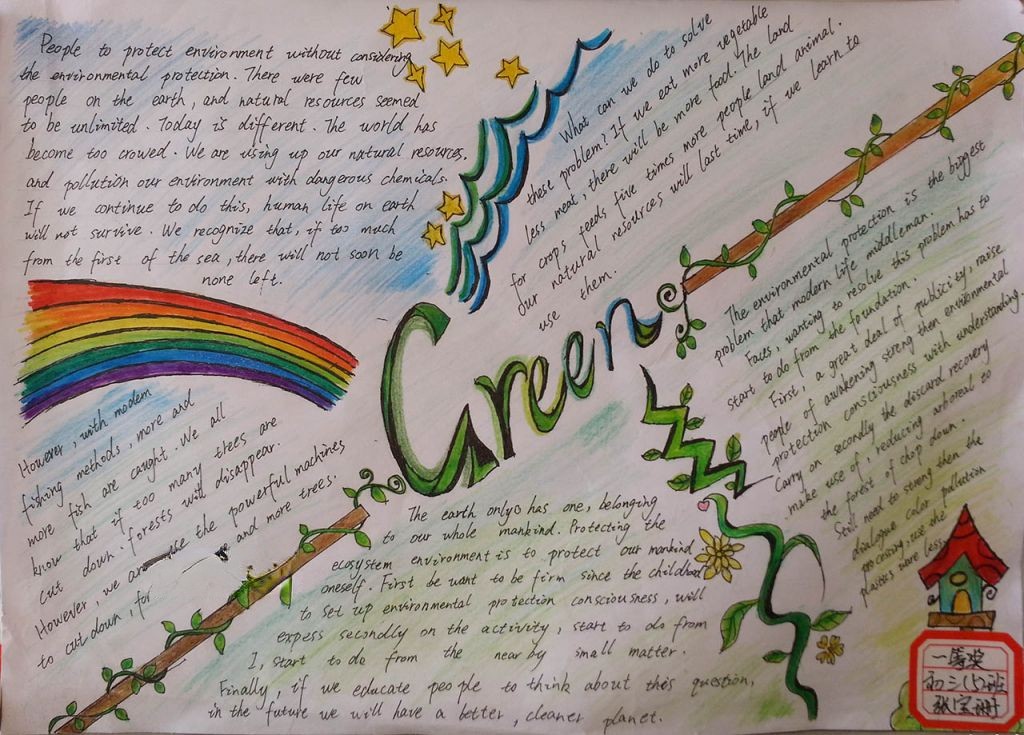 People to protect environment without considering
the environmental protection. There were few
people on the earth, and natural resources seemed
to be unlimited. Today is different. The world has
become too crowed. We are using up our natural resources,
and pollution our environment with dangerous chemicals.
If we continue to do this, human life on earth
will not survive. We recognize that, if too much
from the first of the sea, there will not soon be
none left.
However, with modem
fishing methods, more and
more fish are caught. We all
know that if too many trees are
cut down. forests will disappear.
However, we are use the powerful machines
to cut down, for and more trees.
What can we do to solve
these problem? If we eat more vegetable
less meat, there will be more food. The land
for crops feeds five times more people land animal.
Our natural resources will last time, if we learn to
use them.
Green
The environmental protection is the biggest
problem that modern life middleman.
Faces, wanting to resolve this problem has to
start to do from the foundation.
First, a great deal of publicity, raise
people of awakening streng then environmental
protection consciousness with understanding
Carry on secondly the discard recovery
make use of, reducing arboreal to
the forest of chop down.
Still need to streng then the
dialogue color pollution
processing, use the
plastics ware less
The earth only0 has one, belonging
to our whole mankind. Protecting the
ecosystem environment is to protect our mankind
oneself. First be want to be firm since the childhood
to set up environmental protection consciousness, will
expess secondly on the activity, start to do from
I, start to do from the near by small matter.
Finally, if we educate people to think about this question,
in the future we will have a better, cleaner planet.
一等奖
初三(5)班